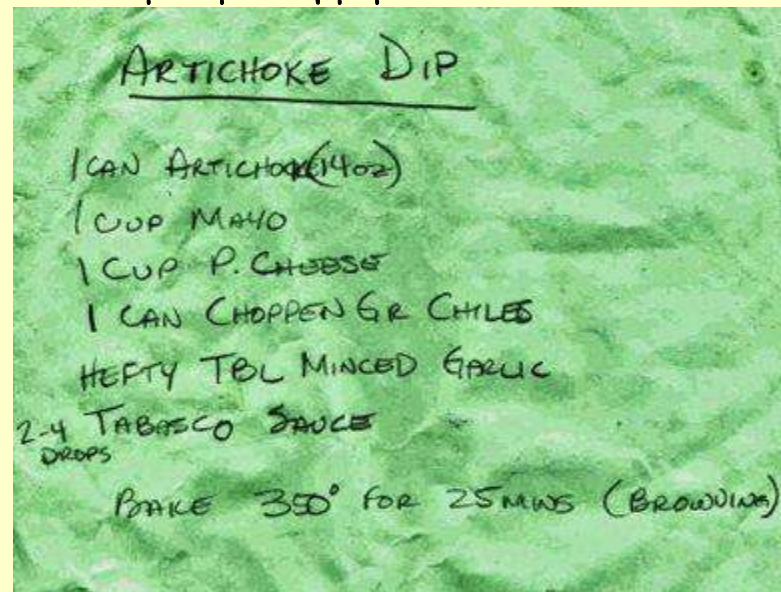 ARTICHOKE DIP
1 CAN ARTICHOKE (14oz)
1 CUP MAYO
1 CUP P. CHEESE
1 CAN CHOPPEN GR CHILES
HEFTY TBL MINCED GARLIC
2-4 DROPS TABASCO SAUCE
BAKE 350° FOR 25 MINS (BROWNING)